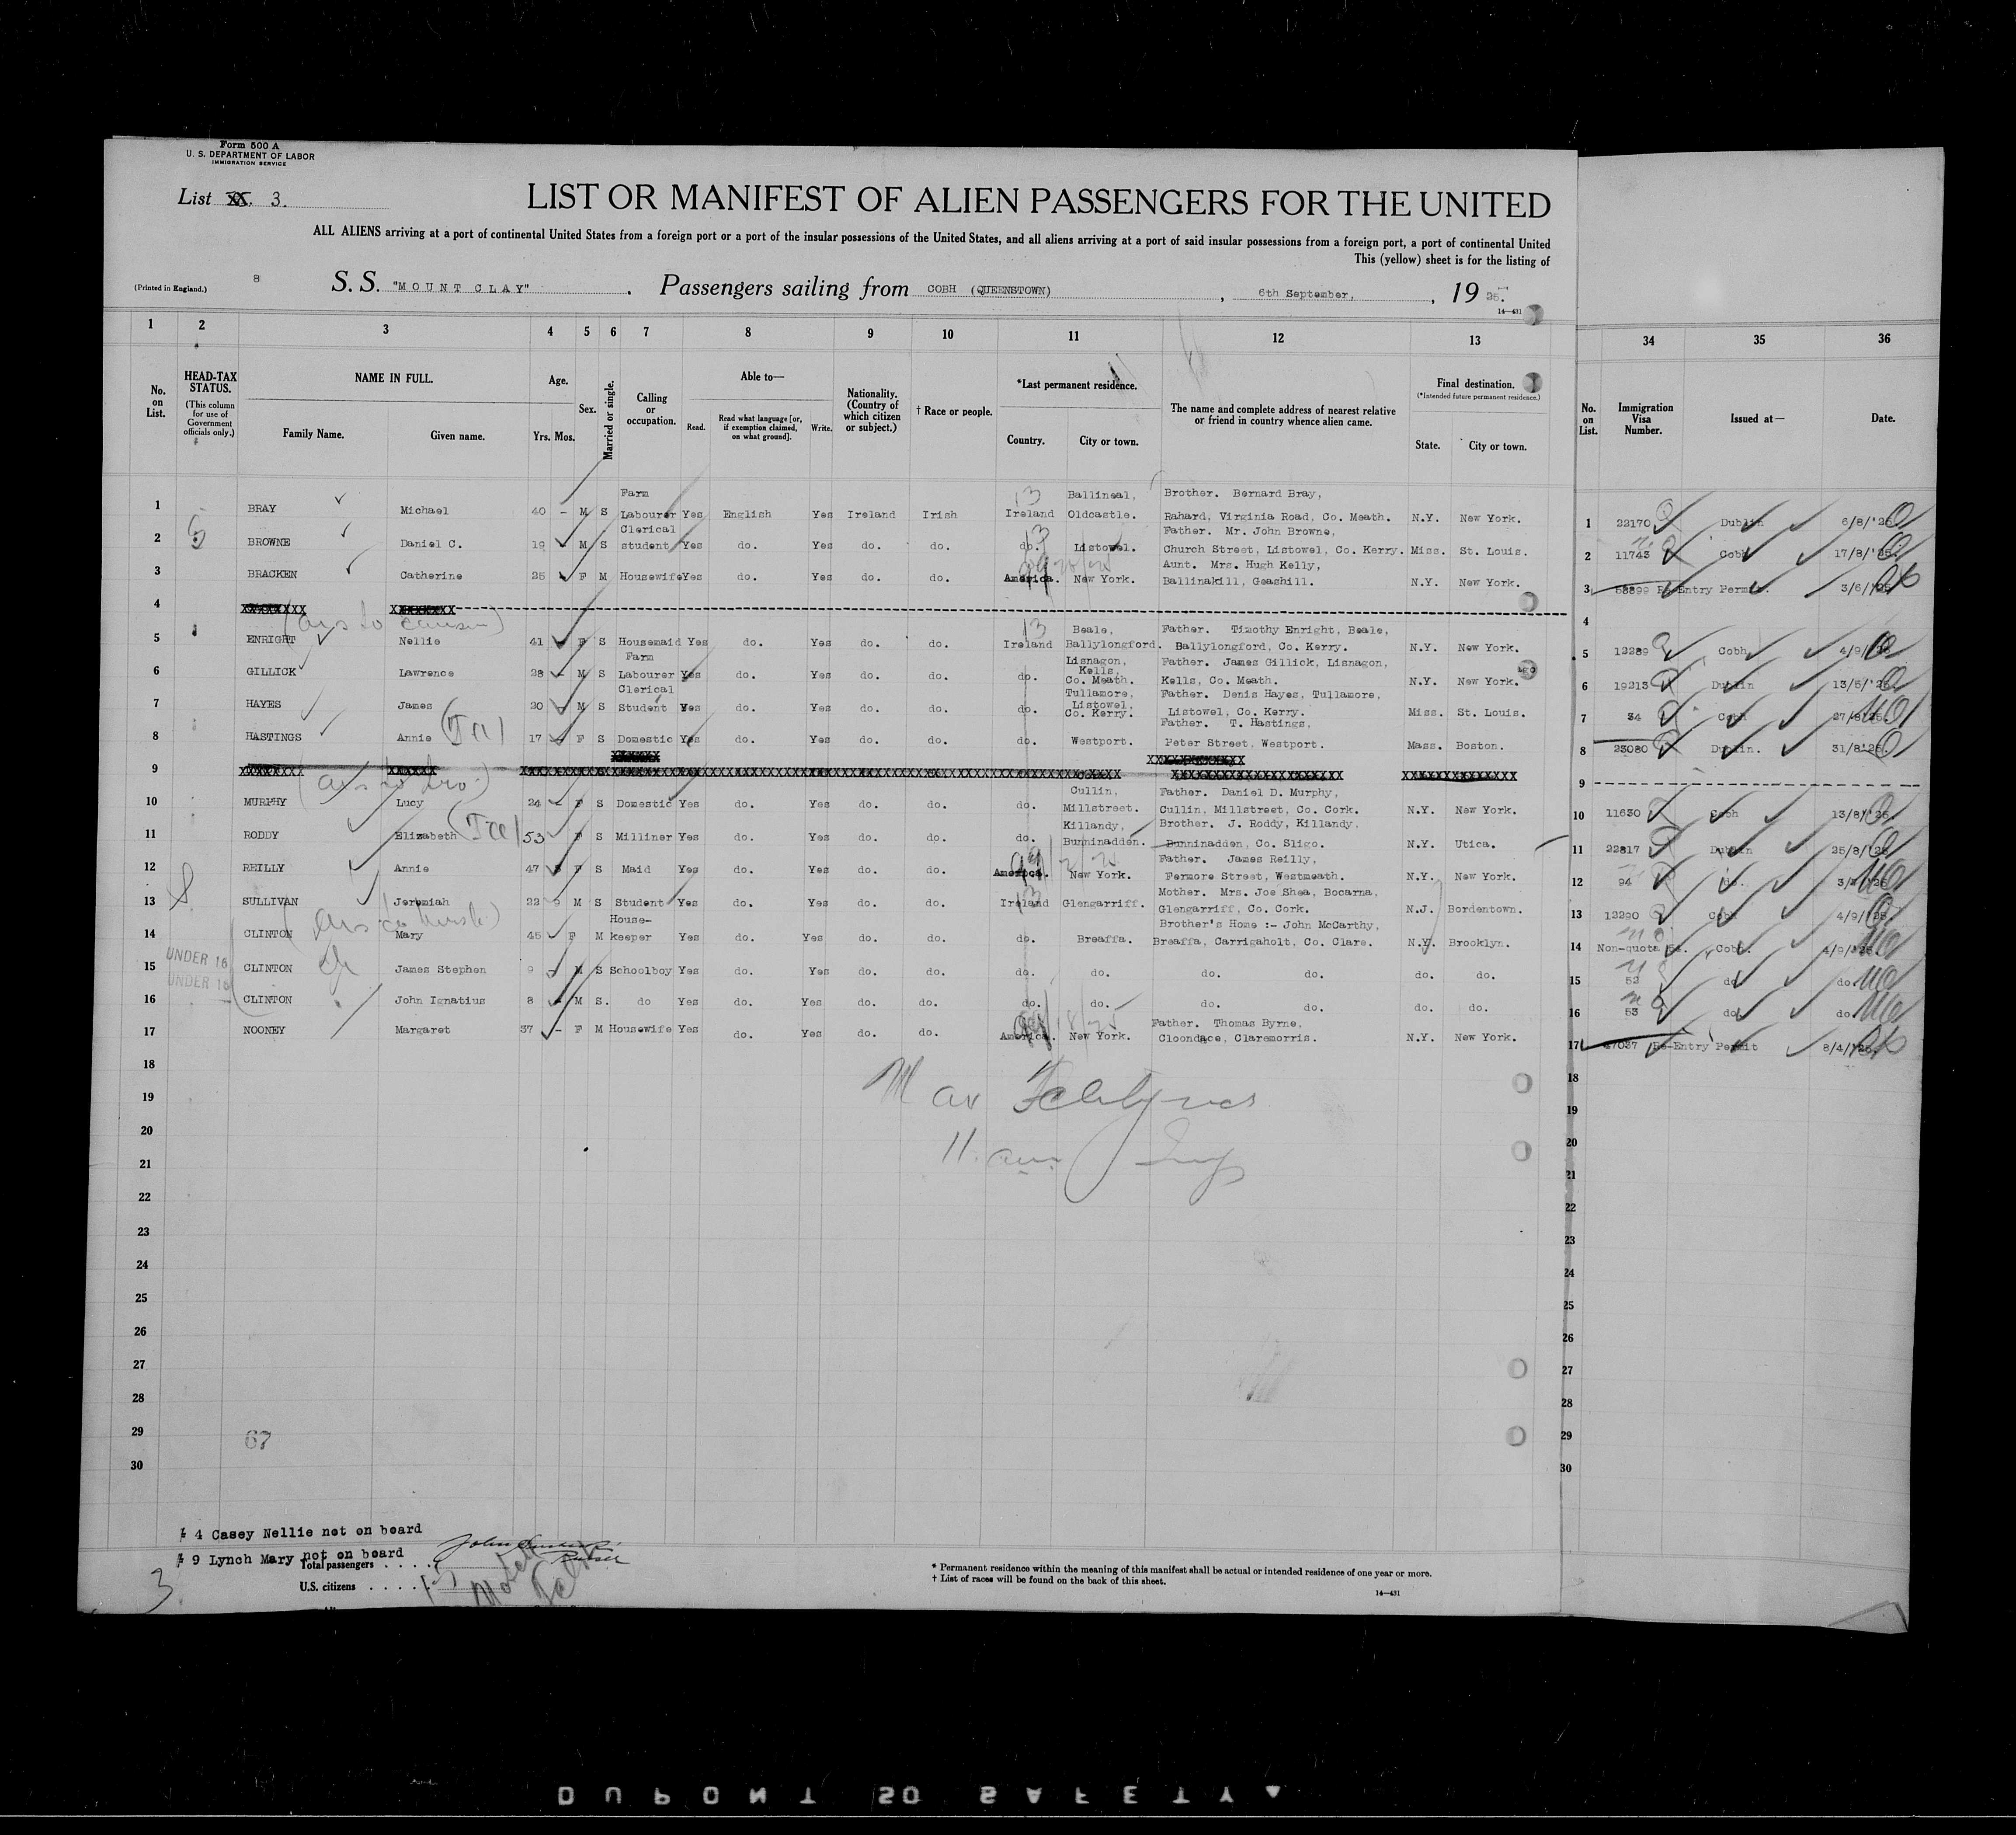 Form 500 A
U. S. DEPARTMENT OF LABOR
IMMIGRATION SERVICE
List 3.
LIST OR MANIFEST OF ALIEN PASSENGERS FOR THE UNITED
ALL ALIENS arriving at a port of continental United States from a foreign port or a port of the insular possessions of the United States, and all aliens arriving at a port of said insular possessions from a foreign port, a port of continental United
This (yellow) sheet is for the listing of
(Printed in England.) 8 S. S. "MOUNT CLAY" . Passengers sailing from COBH (QUEENSTOWN) , 6th September, , 19 25.
14—431
1 2 3 4 5 6 7 8 9 10 11 12 13 34 35 36
No. on List. HEAD-TAX STATUS. (This column for use of Government officials only.) NAME IN FULL. Family Name. Given name. Age. Yrs. Mos. Sex. Married or single. Calling or occupation. Able to— Read. Read what language [or, if exemption claimed, on what ground]. Write. Nationality. (Country of which citizen or subject.) † Race or people. *Last permanent residence. Country. City or town. The name and complete address of nearest relative or friend in country whence alien came. Final destination. (*Intended future permanent residence.) State. City or town. No. on List. Immigration Visa Number. Issued at— Date.
1 BRAY Michael 40 – M S Farm Labourer Yes English Yes Ireland Irish 13 Ireland Ballineal, Oldcastle. Brother. Bernard Bray, Rahard, Virginia Road, Co. Meath. N.Y. New York. 1 22170 Dublin 6/8/'25
2 BROWNE Daniel C. 19 – M S Clerical student Yes do. Yes do. do. 13 do. Listowel. Father. Mr. John Browne, Church Street, Listowel, Co. Kerry. Miss. St. Louis. 2 11743 Cobh 17/8/'25.
3 BRACKEN Catherine 25 F M Housewife Yes do. Yes do. do. America. New York. Aunt. Mrs. Hugh Kelly, Ballinakill, Geashill. N.Y. New York. 3 58899 Re-Entry Permit. 3/6/'25
4 XXXXXXXX XXXXXXXX 4
5 ENRIGHT Nellie 41 F S Housemaid Yes do. Yes do. do. 13 Ireland Beale, Ballylongford. Father. Timothy Enright, Beale, Ballylongford, Co. Kerry. N.Y. New York. 5 12289 Cobh 4/9/'25
6 GILLICK Lawrence 28 – M S Farm Labourer Yes do. Yes do. do. do. Lisnagon, Kells, Co. Meath. Father. James Gillick, Lisnagon, Kells, Co. Meath. N.Y. New York. 6 19213 Dublin 13/5/'25
7 HAYES James 20 – M S Clerical Student Yes do. Yes do. do. do. Tullamore, Listowel, Co. Kerry. Father. Denis Hayes, Tullamore, Listowel, Co. Kerry. Miss. St. Louis. 7 34 Cobh 27/8/25.
8 HASTINGS Annie 17 – F S Domestic Yes do. Yes do. do. do. Westport. Father. T. Hastings, Peter Street, Westport. Mass. Boston. 8 23080 Dublin. 31/8'25
9 XXXXXXXX XXXXXX 9
10 MURPHY Lucy 24 – F S Domestic Yes do. Yes do. do. do. Cullin, Millstreet. Father. Daniel D. Murphy, Cullin, Millstreet, Co. Cork. N.Y. New York. 10 11630 Cobh 13/8/'25
11 RODDY Elizabeth 53 F S Milliner Yes do. Yes do. do. do. Killandy, Bunninadden. Brother. J. Roddy, Killandy, Bunninadden, Co. Sligo. N.Y. Utica. 11 22817 Dublin 25/8/'25
12 REILLY Annie 47 F S Maid Yes do. Yes do. do. America. New York. Father. James Reilly, Fermore Street, Westmeath. N.Y. New York. 12 94 do.
13 SULLIVAN Jeremiah 22 9 M S Student Yes do. Yes do. do. 13 Ireland Glengarriff. Mother. Mrs. Joe Shea, Bocarna, Glengarriff, Co. Cork. N.J. Bordentown. 13 12290 Cobh 4/9/'25
14 CLINTON Mary 45 F M House-keeper Yes do. Yes do. do. do. Breaffa. Brother's Home :- John McCarthy, Breaffa, Carrigaholt, Co. Clare. N.Y. Brooklyn. 14 Non-quota 54. Cobh. 4/9/'25
15 UNDER 16 CLINTON James Stephen 9 – M S Schoolboy Yes do. Yes do. do. do. do. do. do. do. do. 15 52 do do.
16 UNDER 16 CLINTON John Ignatius 8 M S. do Yes do. Yes do. do. do. do. do. do. do. do. 16 53 do do.
17 NOONEY Margaret 37 – F M Housewife Yes do. Yes do. do. America. New York. Father. Thomas Byrne, Cloondace, Claremorris. N.Y. New York. 17 47037 Re-Entry Permit 8/4/'25
18 18
19 19
20 20
21 21
22 22
23 23
24 24
25 25
26 26
27 27
28 28
29 67 29
30 30
4 Casey Nellie not on board
9 Lynch Mary not on board
Total passengers . . . .
U.S. citizens . . . .
Purser
3
* Permanent residence within the meaning of this manifest shall be actual or intended residence of one year or more.
† List of races will be found on the back of this sheet.
14—431
DUPONT SO SAFETY